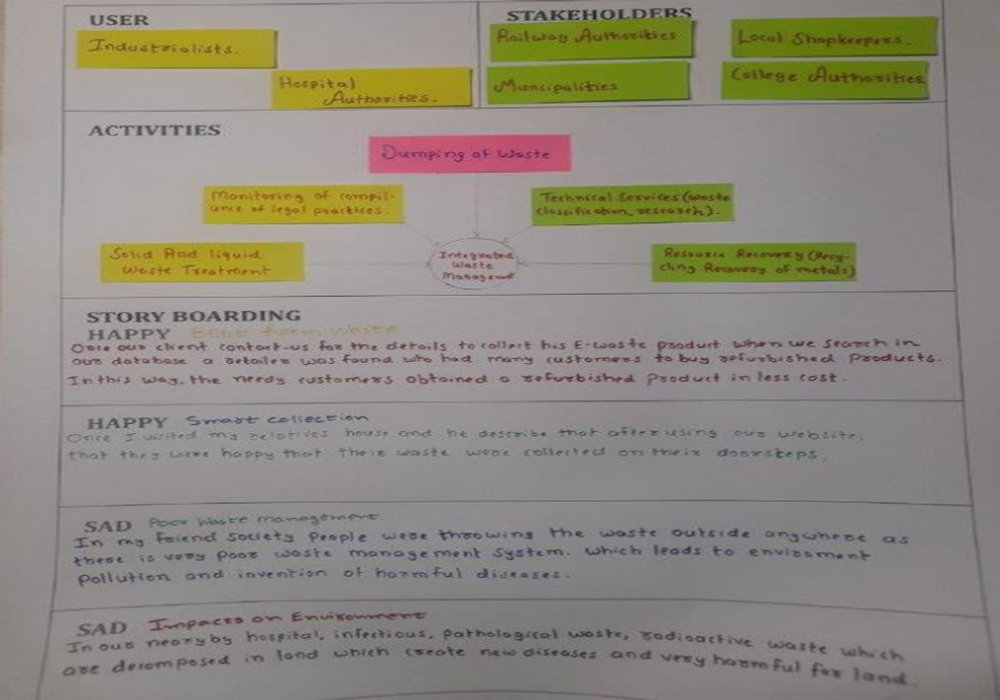 USER
Industrialists.
Hospital
Authorities.
STAKEHOLDERS
Railway Authorities
Local Shopkeepers.
Muncipalities
College Authorities
ACTIVITIES
Dumping of Waste
Monitoring of compil-
iance of legal practices.
Technical Services (waste
classification, research).
Solid And liquid
Waste Treatment
Integrated
Waste
Managment
Resource Recovery (Recy-
cling Recovery of metals)
STORY BOARDING
HAPPY Best from Waste
Once our client contact-us for the details to collect his E-waste product when we search in
our database a retailer was found who had many customers to buy refurbished products.
In this way, the needy customers obtained a refurbished product in less cost.
HAPPY Smart collection
Once I visited my relatives house and he describe that after using our website,
that they were happy that their waste were collected on their doorsteps.
SAD Poor Waste management
In my friend society people were throwing the waste outside anywhere as
there is very poor waste management system. which leads to enviroment
pollution and invention of harmful diseases.
SAD Impacts on Enviroment
In our nearyby hospital, infectious, pathological waste, radioactive waste which
are decomposed in land which create new diseases and very harmful for land.